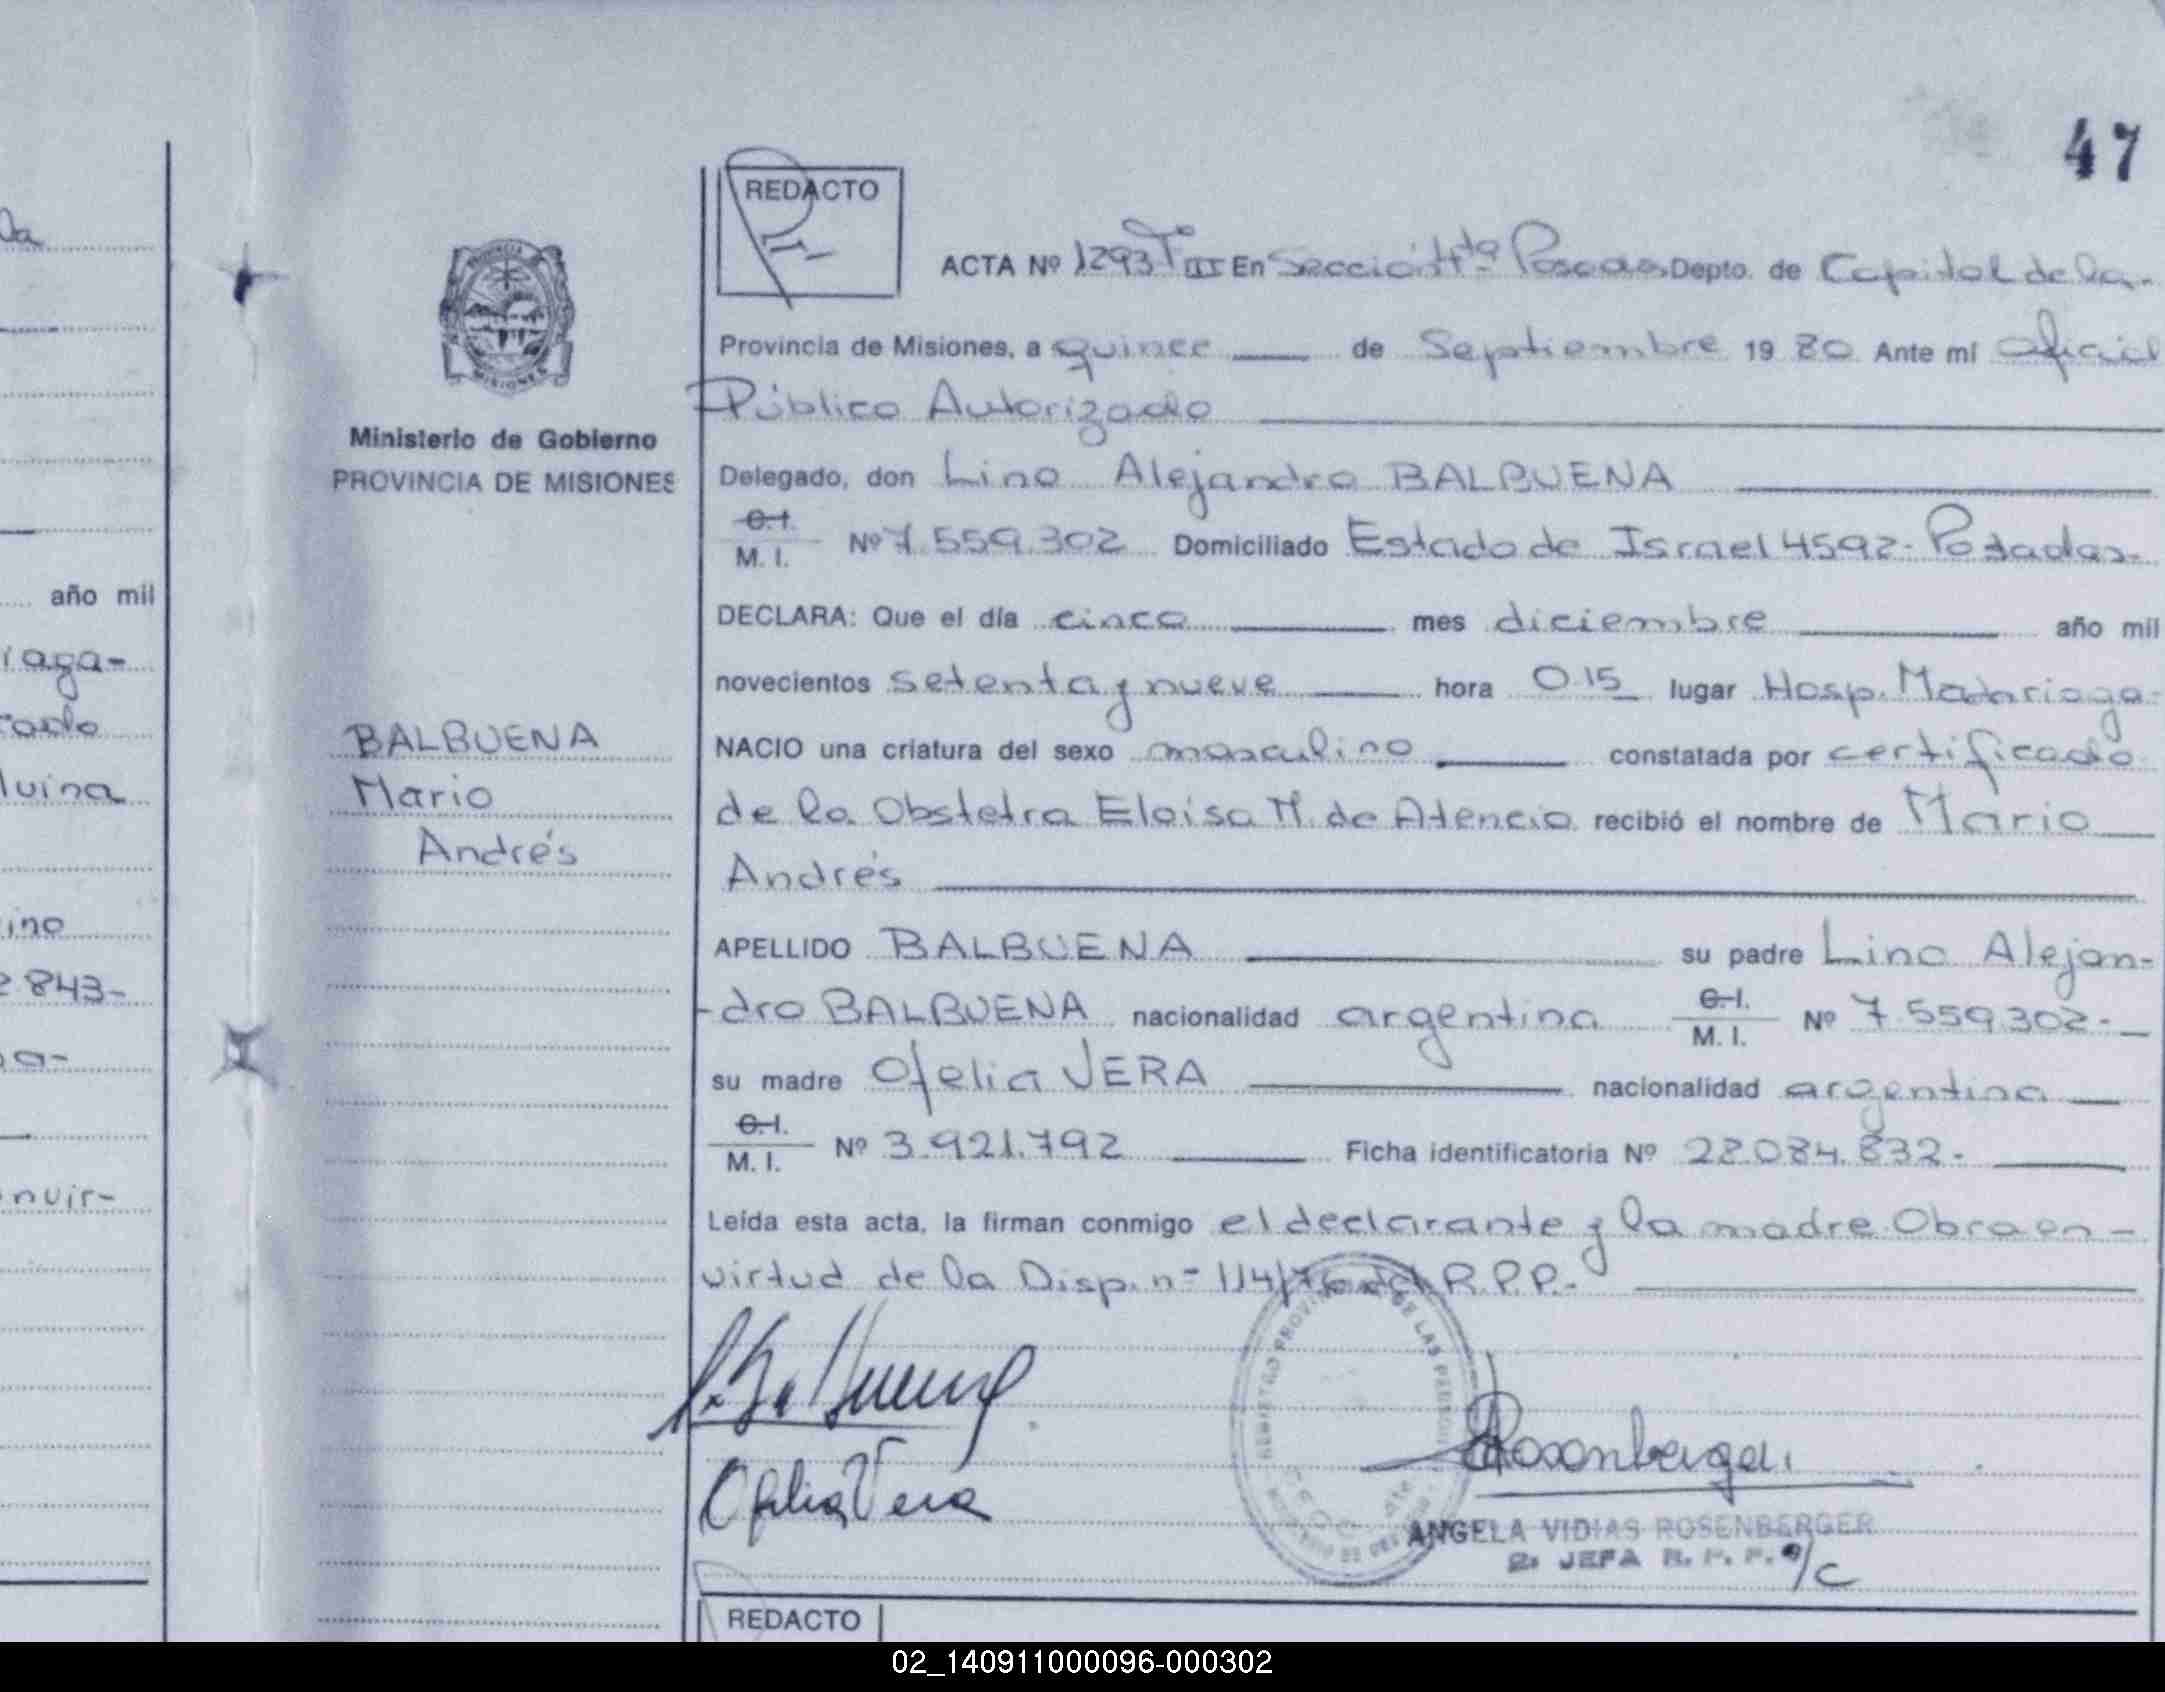 47
REDACTO
ACTA Nº 1293 Tº III En Sección 4ta Posadas Depto. de Capital de la-
Provincia de Misiones, a quince de Septiembre 19 80 Ante mí Oficial
Público Autorizado
Ministerio de Gobierno
PROVINCIA DE MISIONES
Delegado, don Lino Alejandro BALBUENA
C.I.
M. I. Nº 7.559.302 Domiciliado Estado de Israel 4592- Posadas-
DECLARA: Que el día cinco mes diciembre año mil
novecientos setenta y nueve hora 0.15 lugar Hosp. Madariaga-
BALBUENA
Mario
Andrés
NACIO una criatura del sexo masculino constatada por certificado
de la Obstetra Eloisa M. de Atencio recibió el nombre de Mario
Andrés
APELLIDO BALBUENA su padre Lino Alejan-
-dro BALBUENA nacionalidad argentina C.I. M. I. Nº 7.559.302-
su madre Ofelia VERA nacionalidad argentina
C.I.
M. I. Nº 3.921.792 Ficha identificatoria Nº 28.084.832-
Leída esta acta, la firman conmigo el declarante y la madre. Obra en-
virtud de la Disp. nº 114/76 del R.P.P.-
Ofelia Vera
Rosenberger
ANGELA VIDIAS ROSENBERGER
2. JEFA R. P. P. a/c
REDACTO
año mil
02_140911000096-000302